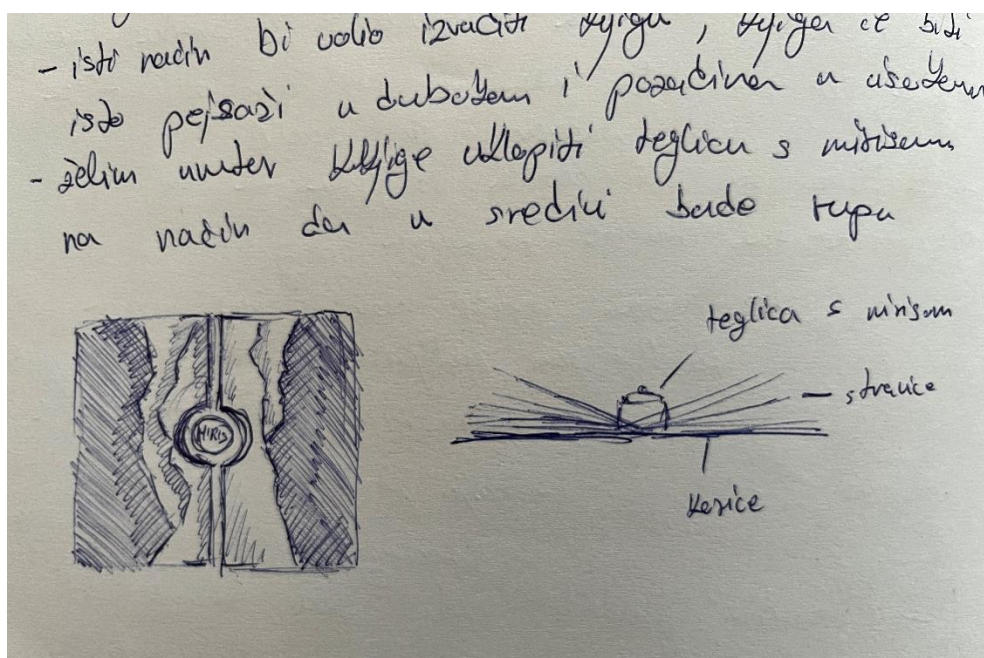 - isti način bi volio izvaditi knjigu, knjiga će biti
isto pejsaži u dubokem i pozadinen u
- želim unuter knjige uklopiti teglicu s mirisem
na način da u sredini bude rupa
teglica s mirisom
MIRIS
- stranice
korice